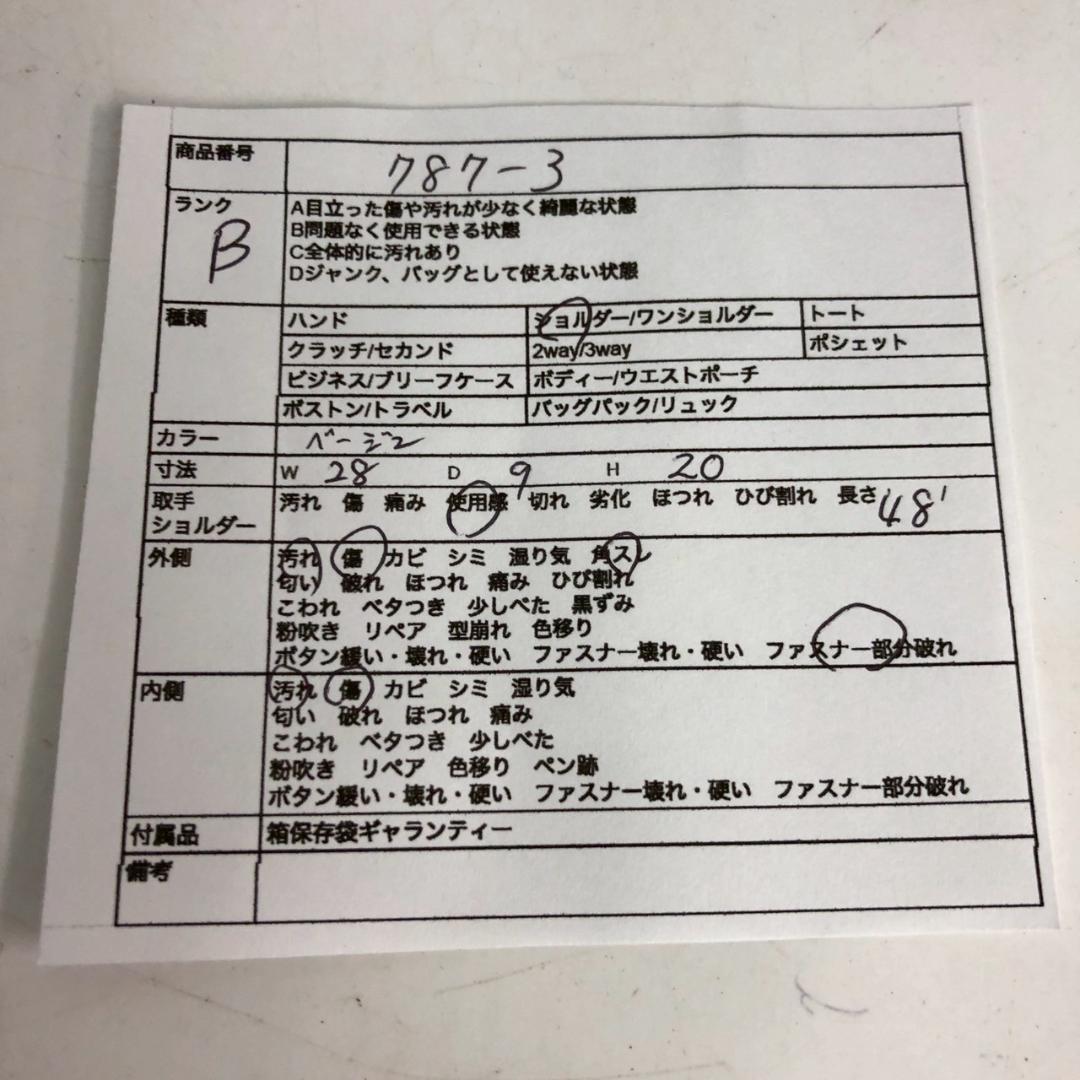 商品番号 787-3
ランク B
A目立った傷や汚れが少なく綺麗な状態
B問題なく使用できる状態
C全体的に汚れあり
Dジャンク、バッグとして使えない状態
種類 ハンド ショルダー/ワンショルダー トート
クラッチ/セカンド 2way/3way ポシェット
ビジネス/ブリーフケース ボディー/ウエストポーチ
ボストン/トラベル バッグパック/リュック
カラー ベージュ
寸法 W 28 D 9 H 20
取手 汚れ 傷 痛み 使用感 切れ 劣化 ほつれ ひび割れ 長さ 48
ショルダー
外側 汚れ 傷 カビ シミ 湿り気 角スレ
匂い 破れ ほつれ 痛み ひび割れ
こわれ ベタつき 少しべた 黒ずみ
粉吹き リペア 型崩れ 色移り
ボタン緩い・壊れ・硬い ファスナー壊れ・硬い ファスナー部分破れ
内側 汚れ 傷 カビ シミ 湿り気
匂い 破れ ほつれ 痛み
こわれ ベタつき 少しべた
粉吹き リペア 色移り ペン跡
ボタン緩い・壊れ・硬い ファスナー壊れ・硬い ファスナー部分破れ
付属品 箱保存袋ギャランティー
備考